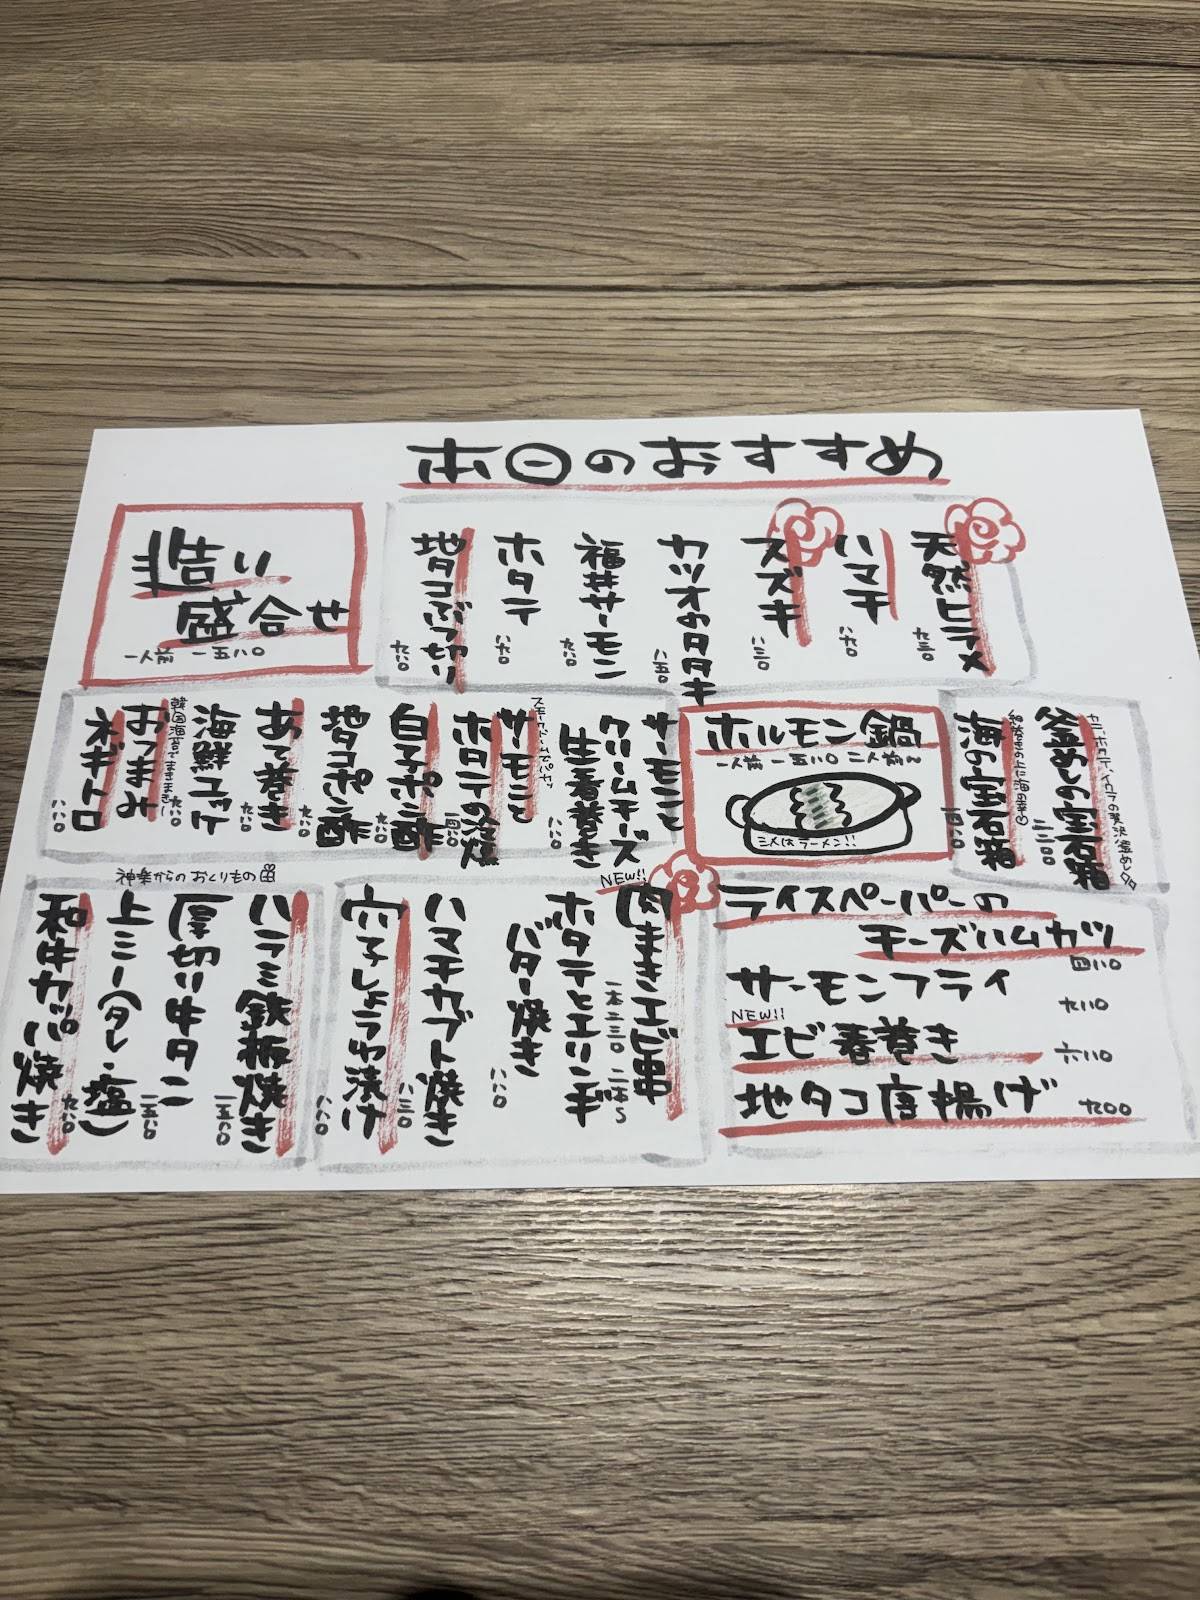 本日のおすすめ
天然ヒラメ
九三〇
ハマチ
八九〇
スズキ
八三〇
カツオのタタキ
八五〇
福井サーモン
九八〇
ホタテ
八九〇
地タコぶつ切り
九八〇
造り
盛合せ
一人前 一五八〇
釜めしの宝石箱
海の宝石箱
ホルモン鍋
一人前 一五八〇 二人前〜
〆はラーメン!!
サーモンと
クリームチーズ
生春巻き
八八〇
サーモンと
ホタテの燻
白子ポン酢
地タコポン酢
九八〇
あて巻き
九八〇
海鮮ユッケ
九八〇
韓国海苔でまきまき!
おつまみ
ネギトロ
八八〇
ライスペーパーの
チーズハムカツ
四八〇
サーモンフライ
九八〇
NEW!!
エビ春巻き
六八〇
地タコ唐揚げ
九〇〇
NEW!!
肉まきエビ串
一本二三〇 二本〜
ホタテとエリンギ
バター焼き
八八〇
ハマチカブト焼き
八三〇
穴子しょうゆ漬け
八八〇
神楽からのおくりもの
ハラミ鉄板焼き
一五八〇
厚切り牛タン
一五八〇
上ミノ(タレ・塩)
和牛カッパ焼き
九八〇